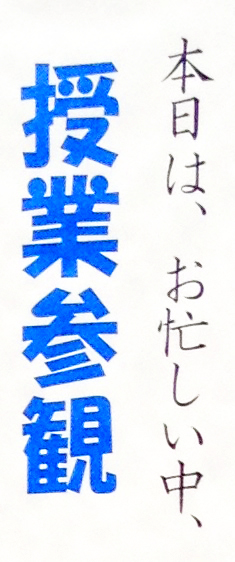 本日は、お忙しい中、
授業参観